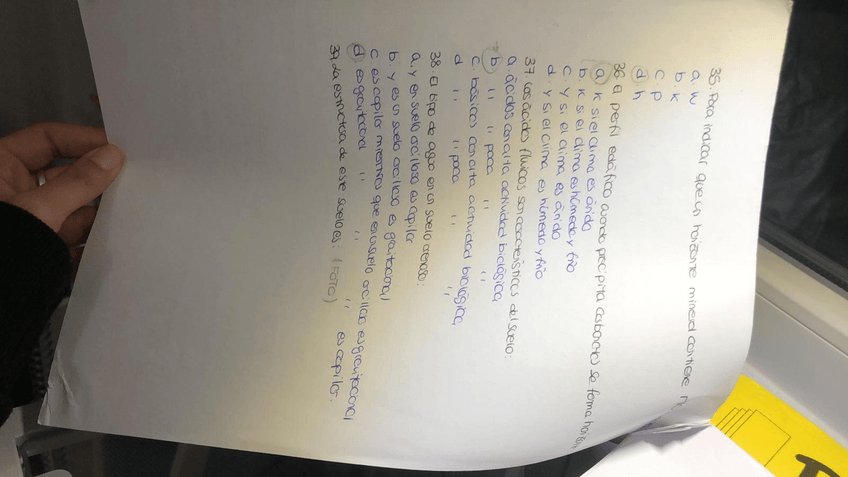 35. Para indicar que un horizonte mineral contiene
a. w
b. k
c. p
d. h
36. El perfil edáfico cuando precipita carbonatos se forma
a. k si el clima es árido
b. k si el clima es húmedo y frío
c. y si el clima es árido
d. y si el clima es húmedo y frío
37. Los ácidos fluvicos son característicos del suelo:
a. ácidos con alta actividad biológica
b. " " poca " "
c. básicos con alta actividad biológica
d " " poca " "
38. El tipo de agua en un suelo arenoso:
a. y en suelo arcilloso es capilar
b. y es un suelo arcilloso es gravitacional
c es capilar mientras que en un suelo arcilloso es gravitacional
d es gravitacional " " " es capilar.
39. La estructura de este suelo es: (FOTO)